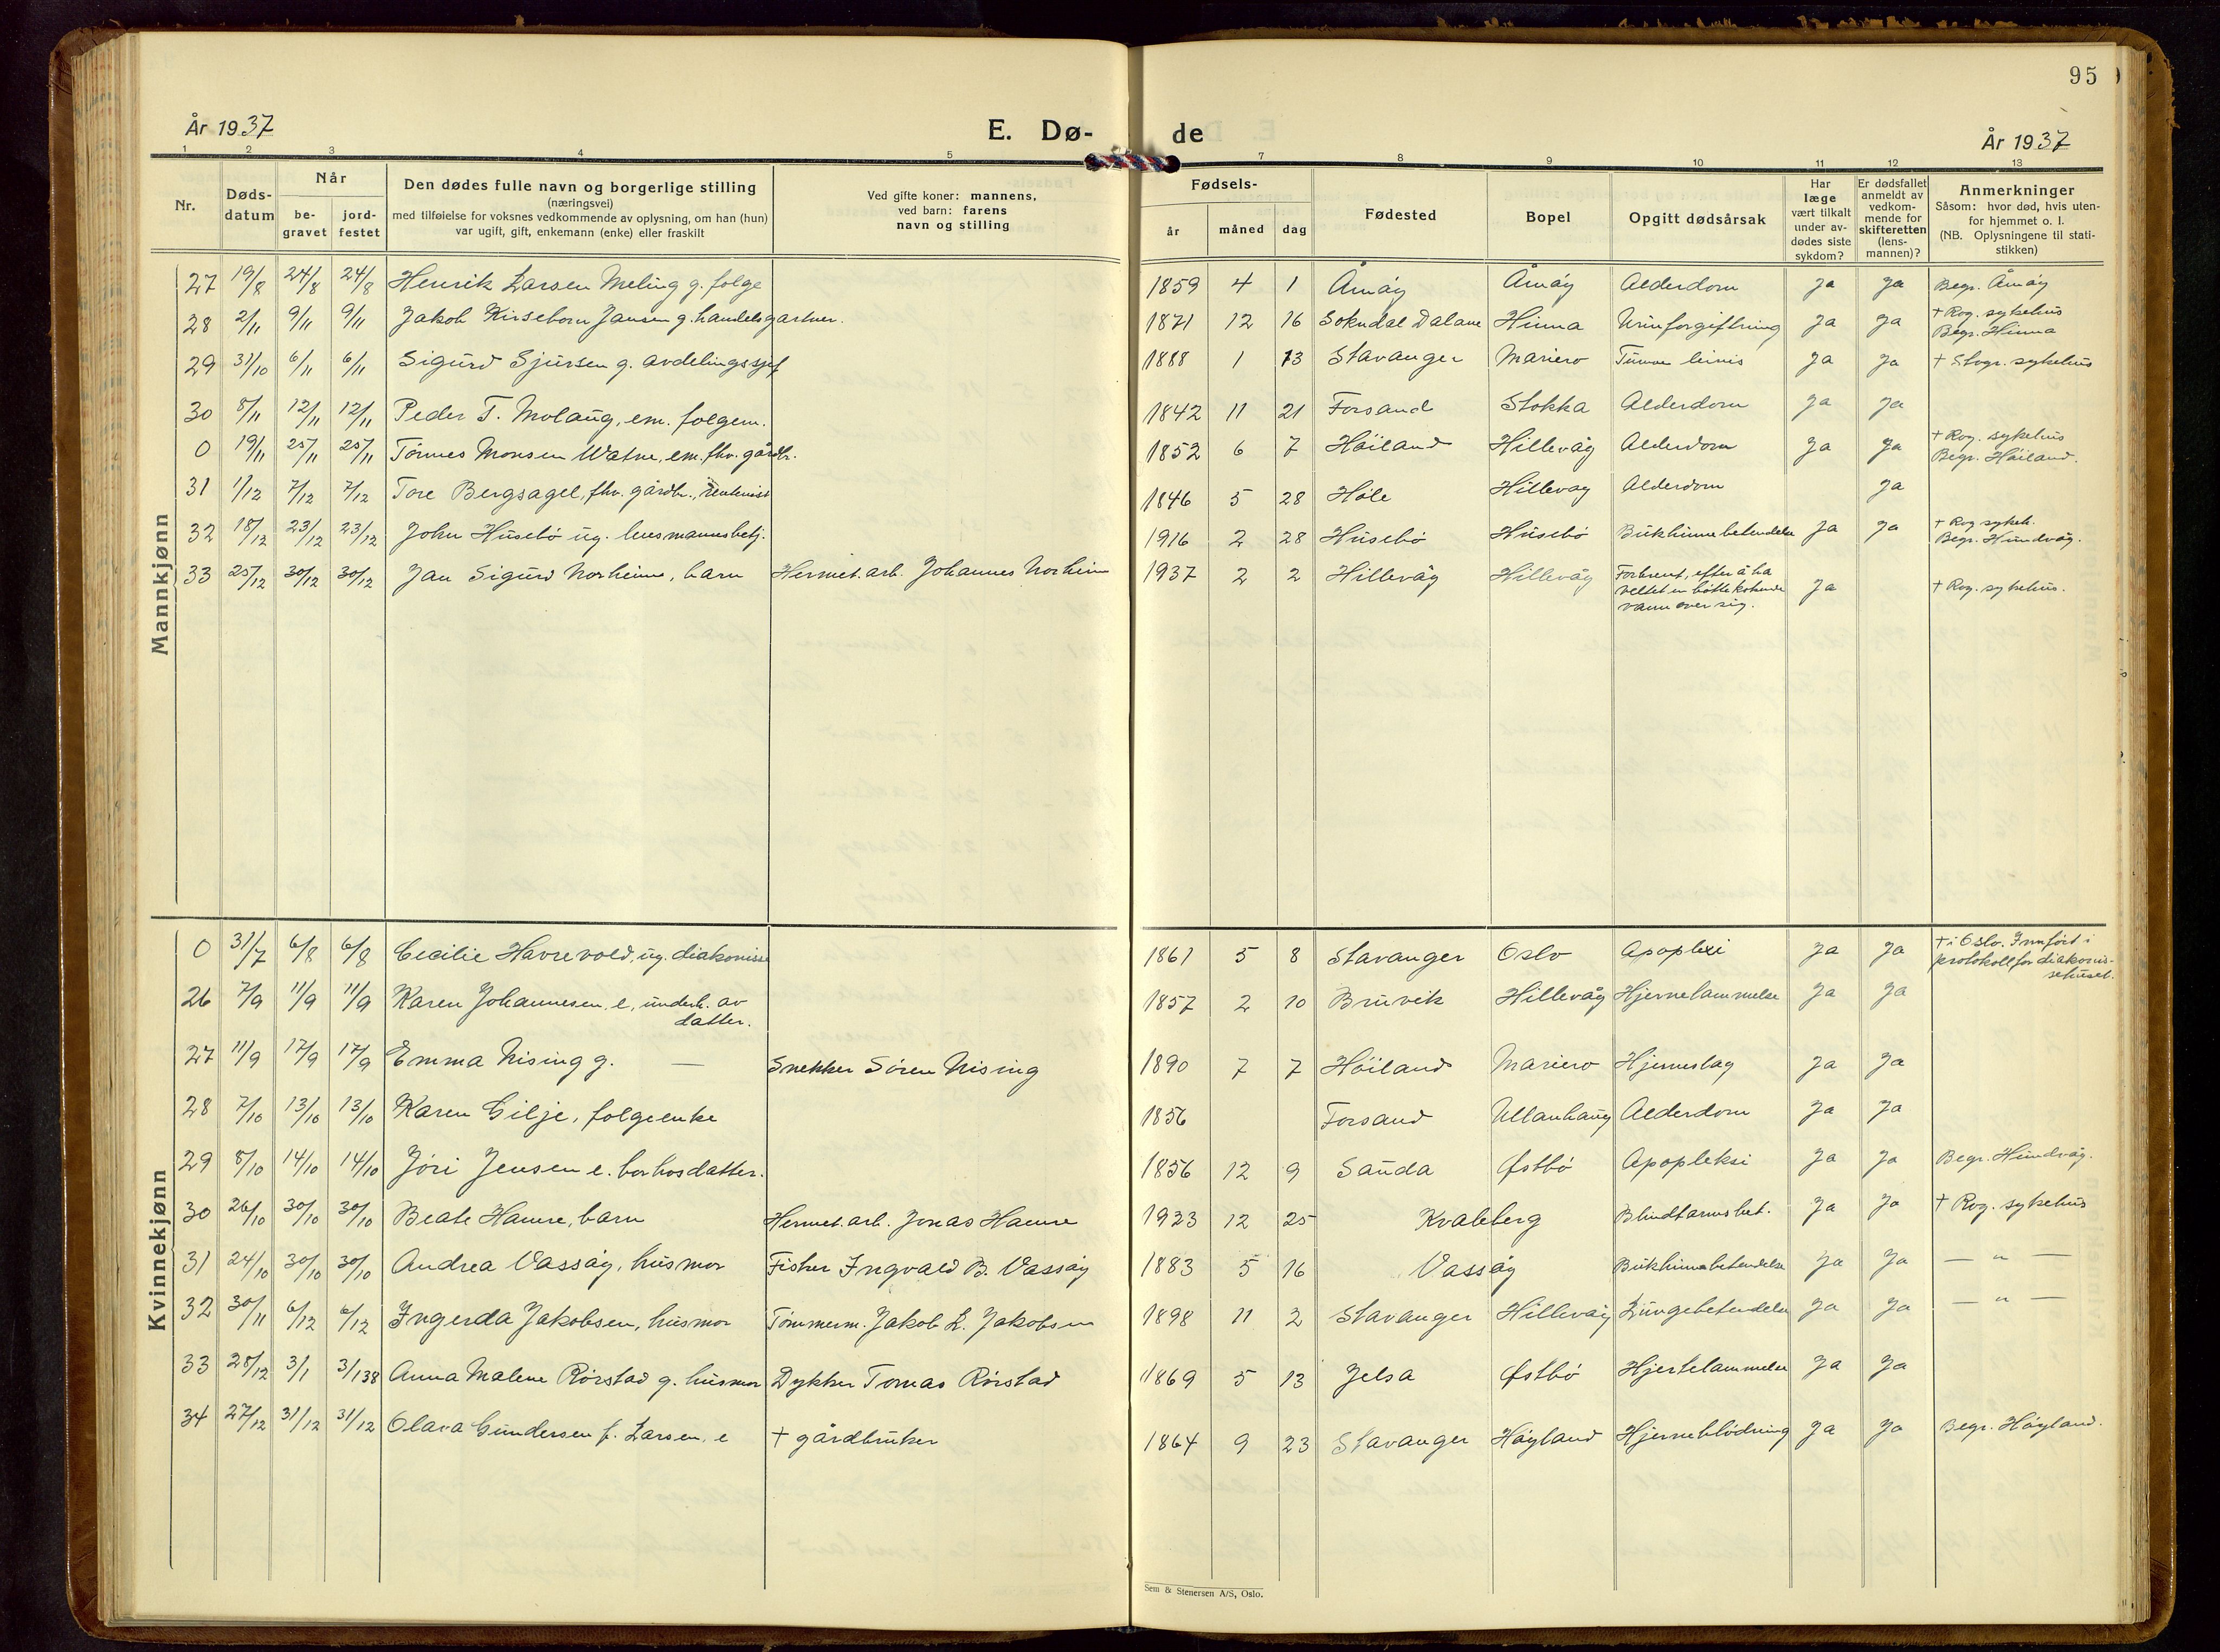 95
År 1937
E. Dø-
de
År 1937
1 2 3 4 5 7 8 9 10 11 12 13
Nr.
Dødsdatum
Når
begravet
jordfestet
Den dødes fulle navn og borgerlige stilling
(næringsvei)
med tilføielse for voksnes vedkommende av oplysning, om han (hun)
var ugift, gift, enkemann (enke) eller fraskilt
Ved gifte koner: mannens,
ved barn: farens
navn og stilling
Fødsels-
år måned dag
Fødested
Bopel
Opgitt dødsårsak
Har
læge
vært tilkalt
under av-
dødes siste
sykdom?
Er dødsfallet
anmeldt av
vedkom-
mende for
skifteretten
(lens-
mannen)?
Anmerkninger
Såsom: hvor død, hvis uten-
for hjemmet o. l.
(NB. Oplysningene til stati-
stikken)
Mannkjønn
27 19/8 24/8 24/8 Henrik Larsen Meling g. folge 1859 4 1 Åmøy Åmøy Alderdom Ja Ja Begr. Åmøy
28 2/11 9/11 9/11 Jakob Kirseborn Jansen g. handelsgartner. 1871 12 16 Sokndal Dalane Hinna Urinforgiftning Ja Ja + Rog. sykehus
Begr. Hinna
29 31/10 6/11 6/11 Sigurd Sjursen g. avdelingssjef 1888 1 13 Stavanger Mariero Tumor Ja Ja + Stvgr. sykehus
30 8/11 12/11 12/11 Peder T. Molaug, em. folgem. 1842 11 21 Forsand Stokka Alderdom Ja Ja
0 19/11 25/11 25/11 Tønnes Monsen Watne, em. fhv. gårdbr. 1852 6 7 Høiland Hillevåg Alderdom Ja Ja + Rog. sykehus
Begr. Høiland.
31 1/12 7/12 7/12 Tore Bergsagel, fhv. gårdbr., rentenist 1846 5 28 Høle Hillevåg Alderdom Ja
32 18/12 23/12 23/12 John Husebø ug. lensmannsbetj. 1916 2 28 Husebø Husebø Bukhinnebetendelse Ja Ja + Rog sykeh.
Begr. Hundvåg.
33 25/12 30/12 30/12 Jan Sigurd Norheim, barn Hermet. arb. Johannes Norheim 1937 2 2 Hillevåg Hillevåg Forbrent, efter å ha
veltet en bøtte kokende
vann over sig. Ja + Rog. sykehus.
Kvinnekjønn
0 31/7 6/8 6/8 Cecilie Havrevold, ug. diakonisse 1861 5 8 Stavanger Oslo Apoplexi Ja Ja + i Oslo. Innført i
protokoll for diakonis-
sehuset.
26 7/9 11/9 11/9 Karen Johannesen, e, underh. av
datter. 1857 2 10 Bruvik Hillevåg Hjernelammelse Ja Ja
27 11/9 17/9 17/9 Emma Nising g. — Snekker Søren Nising 1890 7 7 Høiland Mariero Hjerneslag Ja Ja
28 7/10 13/10 13/10 Karen Gilje, folgeenke 1856 Forsand Ullanhaug Alderdom Ja Ja
29 8/10 14/10 14/10 Jøri Jensen e. bor hos datter. 1856 12 9 Sauda Østbø Apopleksi Ja Ja Begr. Hundvåg.
30 26/10 30/10 30/10 Beate Hamre, barn Hermet. arb. Jonas Hamre 1923 12 25 Kvaleberg Blindtarmsbet. Ja Ja + Rog. sykehus
31 24/10 30/10 30/10 Andrea Vassøy, husmor Fisker Ingvald B. Vassøy 1883 5 16 Vassøy Bukhinnebetendelse Ja Ja — " —
32 30/11 6/12 6/12 Ingerda Jakobsen, husmor Tømmerm. Jakob L. Jakobsen 1898 11 2 Stavanger Hillevåg Lungebetendelse Ja Ja — " —
33 28/12 3/1 3/1 38 Anna Malene Rørstad g. husmor Dykker Tomas Rørstad 1869 5 13 Jelsa Østbø Hjertelammelse Ja Ja
34 27/12 31/12 31/12 Olava Gundersen f. Larsen, e + gårdbruker 1864 9 23 Stavanger Høyland Hjerneblødning Ja Ja Begr. Høyland.
Sem & Stenersen A/S, Oslo.